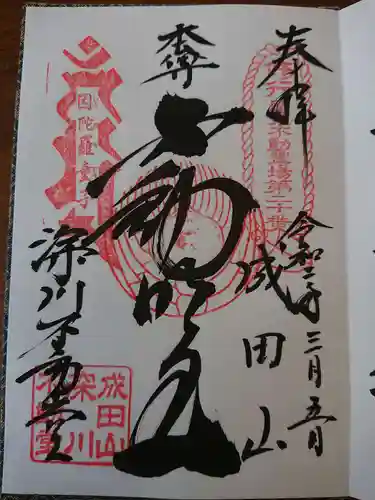 奉拝
不動霊場第二十番
令和二年三月五日
成田山
本尊
不動明王
因陀羅童子
深川不動堂
成田山
深川
不動堂